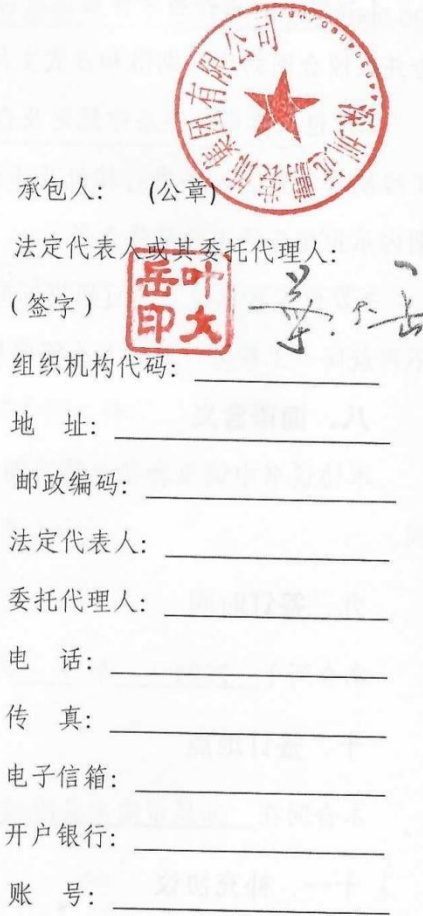 深圳远鹏装饰集团有限公司
承包人: (公章)
法定代表人或其委托代理人:
(签字)
叶大岳印
组织机构代码:
地 址:
邮政编码:
法定代表人:
委托代理人:
电 话:
传 真:
电子信箱:
开户银行:
账 号: